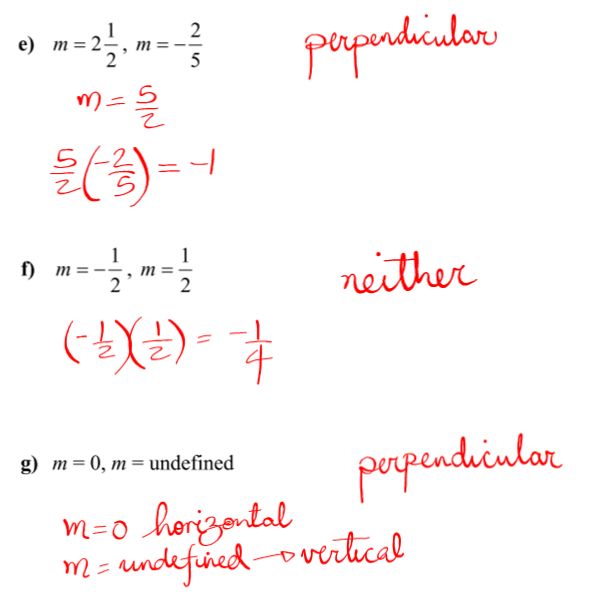 e) m = 2 1/2, m = -2/5 perpendicular
m = 5/2
5/2(-2/5) = -1
f) m = -1/2, m = 1/2 neither
(-1/2)(1/2) = -1/4
g) m = 0, m = undefined perpendicular
m=0 horizontal
m = undefined → vertical